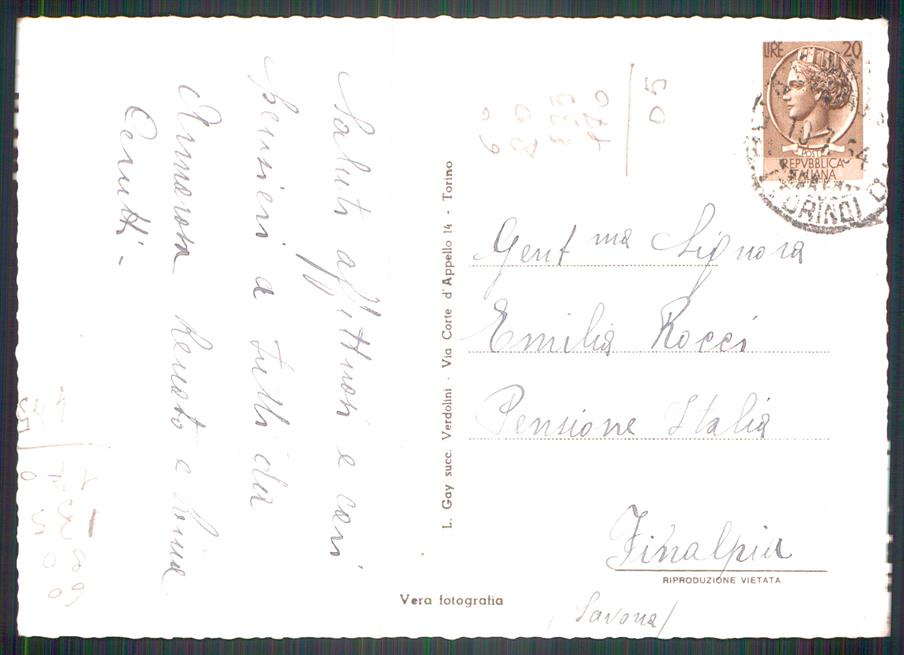 Saluti affettuosi e cari
pensieri a tutti da
Annarosa Renato e Luisa
Cerutti -
L. Gay succ. Verdolini - Via Corte d'Appello 14 - Torino
Vera fotografia
60
20
535
170
05
LIRE 20
POSTE
REPVBBLICA
ITALIANA
Gent ma Signora
Emilia Rocci
Pensione Italia
Finalpia
RIPRODUZIONE VIETATA
(Savona)